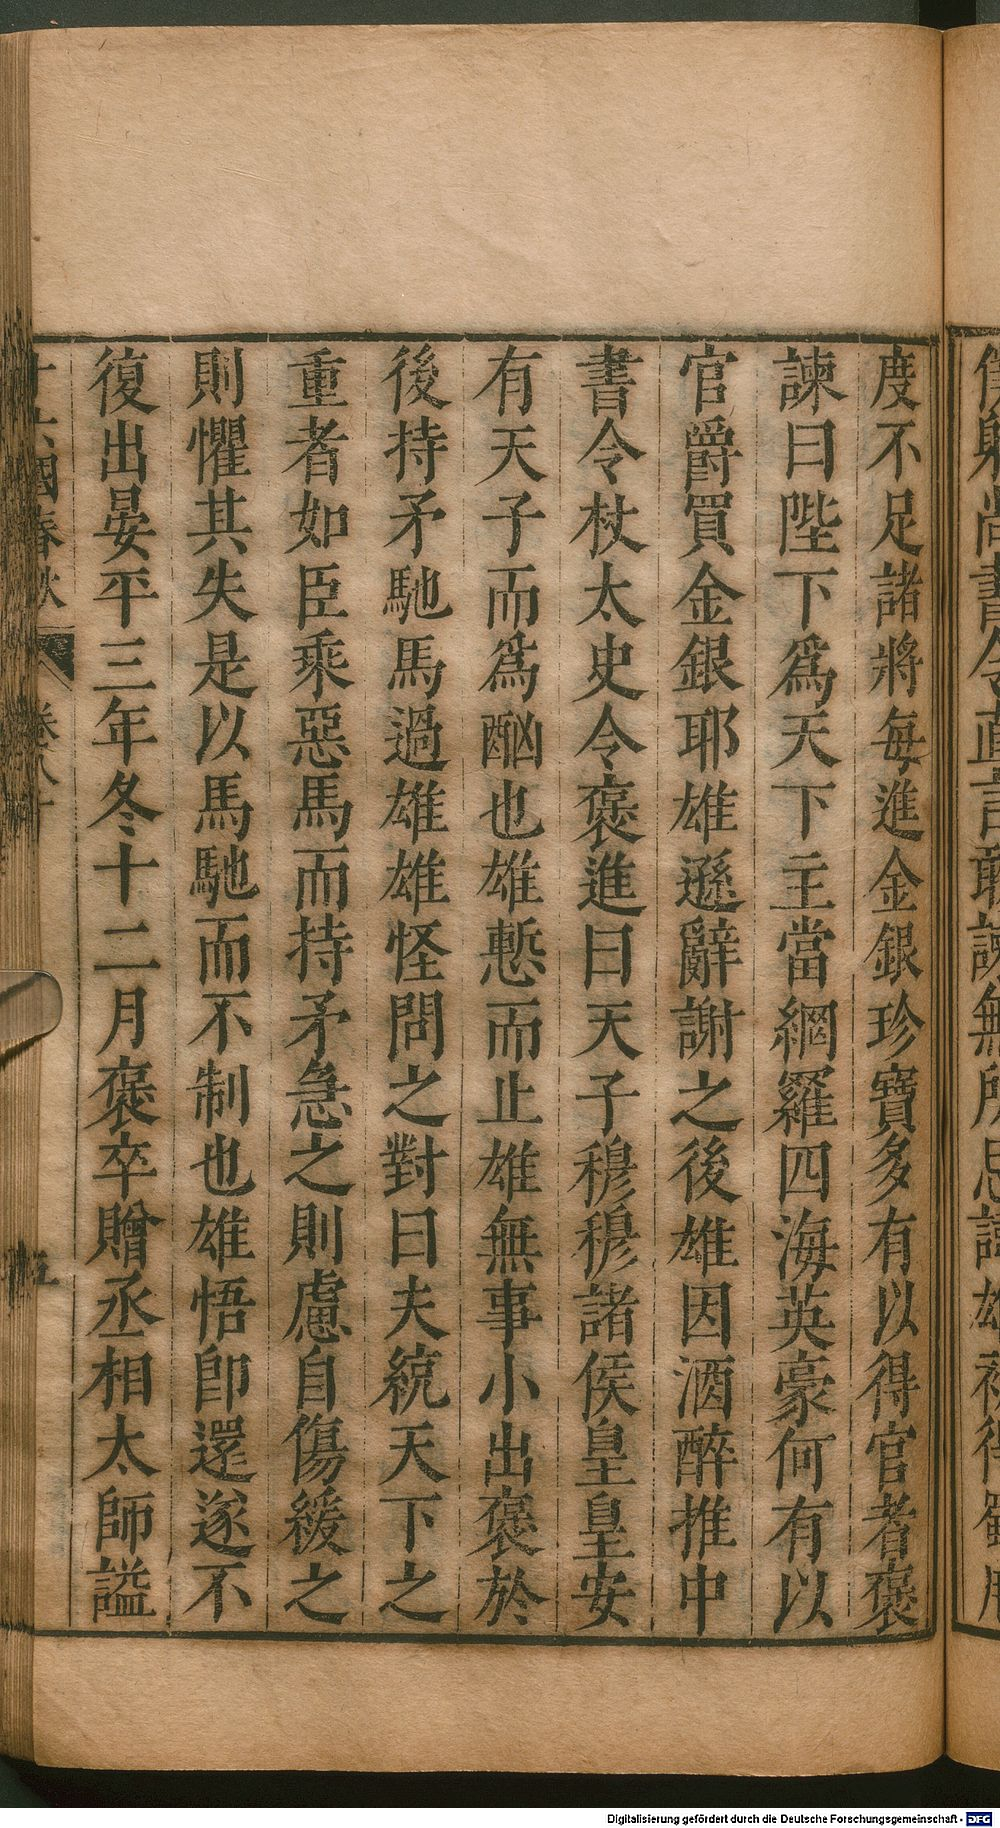 度不足諸將每進金銀珍寶多有以得官者褒
諫曰陛下爲天下主當網羅四海英豪何有以
官爵買金銀耶雄遜辭謝之後雄因酒醉推中
書令杖太史令褒進曰天子穆穆諸侯皇皇安
有天子而爲酗也雄慙而止雄無事小出褒於
後持矛馳馬過雄雄怪問之對曰夫統天下之
重者如臣乘惡馬而持矛急之則慮自傷緩之
則懼其失是以馬馳而不制也雄悟卽還遂不
復出晏平三年冬十二月褒卒贈丞相太師謚
國春秋
五
Digitalisierung gefördert durch die Deutsche Forschungsgemeinschaft - DFG